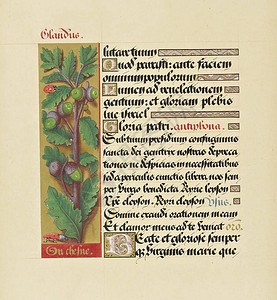 Glandus.
lutare tuum
Quod parasti: ante faciem
omnium populorum
Lumen ad revelationem
gentium: et gloriam plebis
tue Israel
Gloria patri. antiphona.
Sub tuum presidium confugimus
sancta dei genitrix nostras depreca
tiones ne despicias in necessitatibus
sed a periculis cunctis libera nos sem
per virgo benedicta Kyrie leyson
Xpe leyson. Kyrie leyson Psus.
Domine exaudi orationem meam
Et clamor meus ad te veniat oro.
Beate et gloriose semper
que virginis marie que
Du chesne.